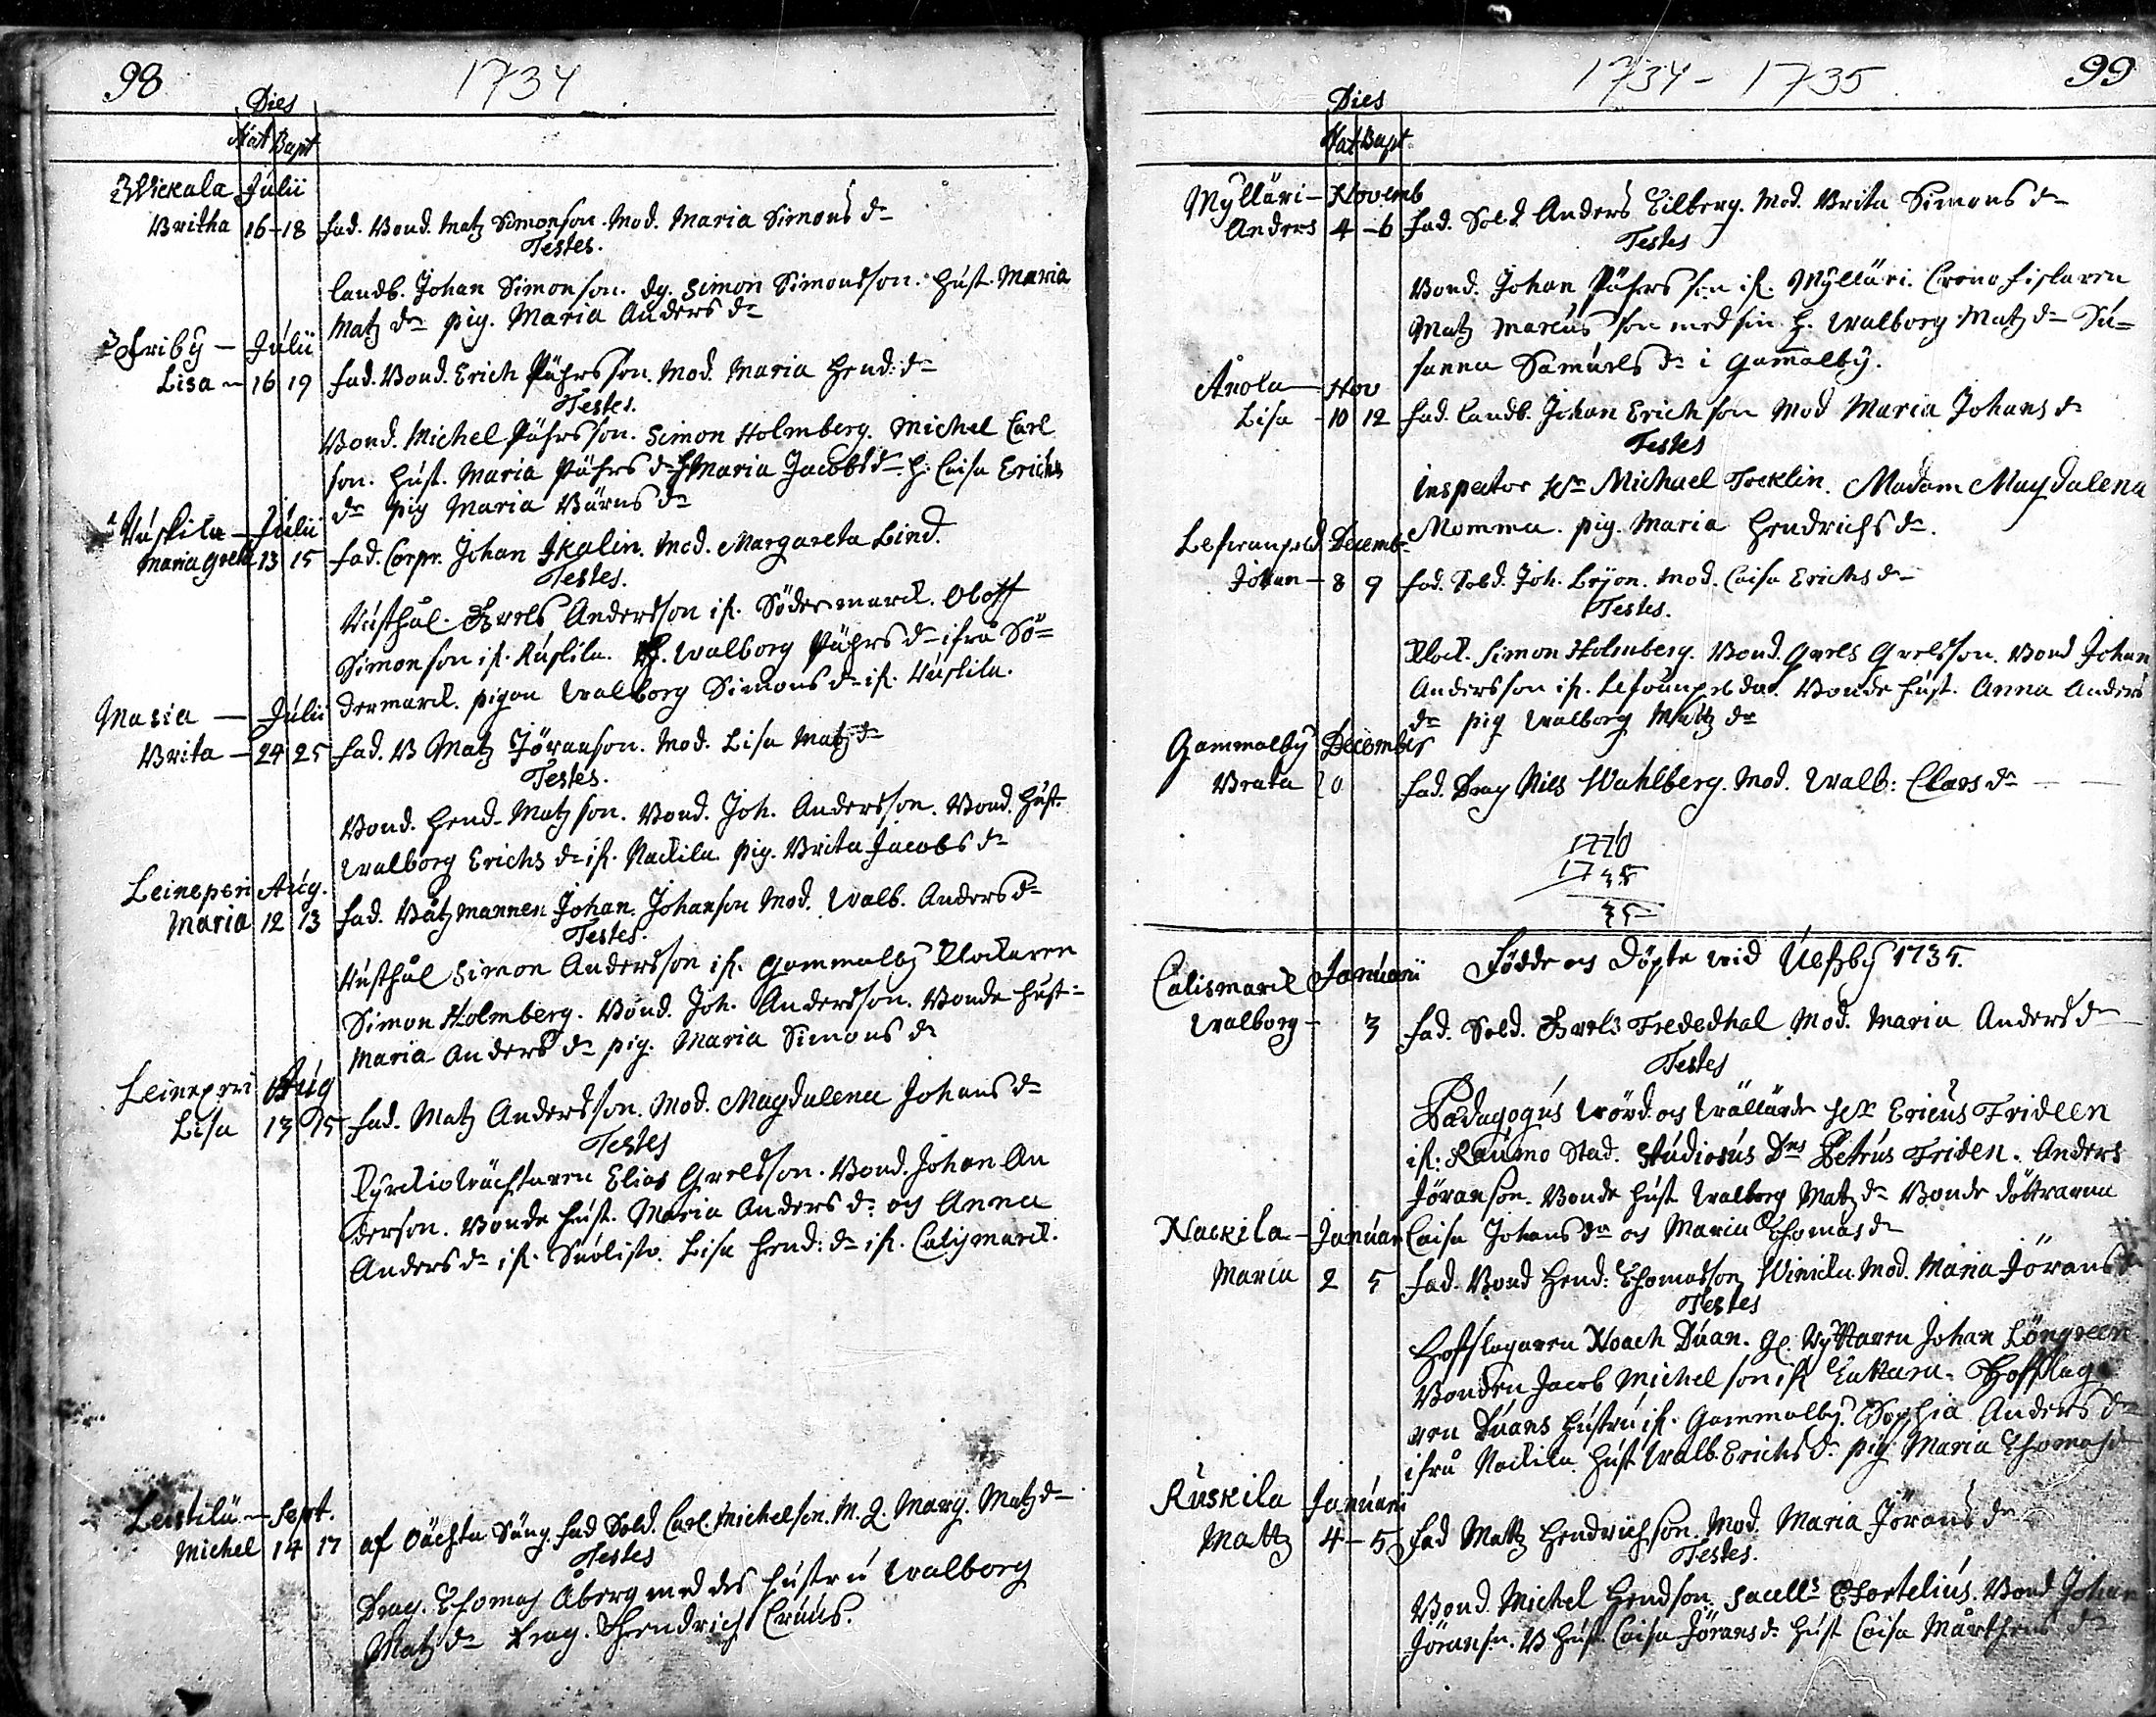 98
1734
Dies
Nat Bapt
Wickala Julii
Britha 16-18 fad. Bond. Matz Simonson. Mod. Maria Simons dr
Testes.
Landb. Johan Simonson. dg. Simon Simonsson. Hust. Maria
Matz dr pig. Maria Anders dr
Friby – Julii
Lisa – 16 19 fad. Bond. Erich Påhrsson. Mod. Maria Hend: dr
Testes.
Bond. Michel Påhrsson. Simon Holmberg. Michel Carl
son. Hust. Maria Påhrs dr H Maria Jacobs dr H. Caisa Erichs
dr pig Maria Börns dr
Ruskila – Julii
Maria Greta 13 15 fad. Corpr. Johan Ikalin. Mod. Margareta Lind.
Testes.
Rusthål. Grels Andersson if. Södermarck. Oloff
Simonson if. Ruskila. H. Walborg Påhrs dr ifrå Sö=
dermarck. pigan Walborg Simons dr if. Ruskila.
Masia – Julii
Brita – 24 25 fad. B Matz Jöranson. Mod. Lisa Matz dr
Testes.
Bond. Hend. Matzson. Bond. Joh. Andersson. Bond. Hust.
Walborg Erichs dr if. Nackila pig. Brita Jacobs dr
Leineperi Aug.
Maria 12 13 fad. Båtzmannen Johan Johanson Mod. Walb. Anders dr
Testes.
Rusthål Simon Andersson if. Gammalby Klockaren
Simon Holmberg. Bond. Joh. Andersson. Bonde hust=
Maria Anders dr pig. Maria Simons dr
Leineperi Aug
Lisa 13 15 fad. Matz Andersson. Mod. Magdalena Johans dr
Testes
Kyrckiowächtaren Elias Grelsson. Bond. Johan An
derson. Bonde hust. Maria Anders dr och Anna
Anders dr if. Suolisto. Lisa Hend: dr if. Calismarck.
Leistilä – Sept.
Michel 14 17 af oächta Säng. fad Sold. Carl Michelson. M. Q. Marg. Matz dr
Testes
Drag. Thomas Åberg med des hustru Walborg
Matz dr Drag. Hendrich Cruus.
1734 – 1735
99
Dies
Nat Bapt
Mylläri – Novemb
Anders 4 – 6 fad. Sold Anders Eilberg. Mod. Brita Simons dr
Testes
Bond. Johan Påhrsson if. Mylläri. Crono fiskaren
Matz Marcusson med sin H. Walborg Matz dr Su=
sanna Samuels dr i Gammalby.
Anola – Nov
Lisa – 10 12 fad. Landb. Johan Erichson Mod Maria Johans dr
Testes
Inspector Hr Michael Tocklin. Madam Magdalena
Momma. pig. Maria Hendrichs dr.
Decemb
Johan – 8 9 fad. Sold. Joh. Leijon. Mod. Caisa Erichs dr
Testes.
Klock. Simon Holmberg. Bond. Grels Grelsson. Bond Johan
Andersson if. Bonde hust. Anna Anders
dr pig Walborg Matz dr
Gammalby December
Beata 20 fad. Drag Nils Wahlberg. Mod. Walb: Claes dr
1770
1735
35
Födde och Döpte wid Ulfsby 1735.
Calismarck Januarii
Walborg – 3 fad. Sold. Grels Fridedhal Mod. Maria Anders dr
Testes
Pædagogus Wörd. och Wällärde Hr Ericus Frideen
if: Raumo Stad. Studiosus Dns Petrus Friden. Anders
Jöranson. Bonde hust Walborg Matz dr Bonde döttrarna
Nackila – Januar Caisa Johans dr och Maria Thomas dr
Maria 2 5 fad. Bond Hend: Thomasson Mod. Maria Jörans dr
Testes
Hofslagaren Noach Duan. Johan Löngreen
Bonden Jacob Michelson if Hofslaga
ren Duans hustru if. Gammalby. Sophia Anders dr
ifrå Nackila. hust Walb. Erichs dr pig Maria Thomas dr
Ruskila Januari
Mattz 4 – 5 fad Mattz Hendrichson. Mod. Maria Jörans dr
Testes.
Bond. Michel Hendson. Sacells Thortelius. Bond Johan
Jöranson. B Hust. Caisa Jörans dr Hust Caisa Mårthens dr